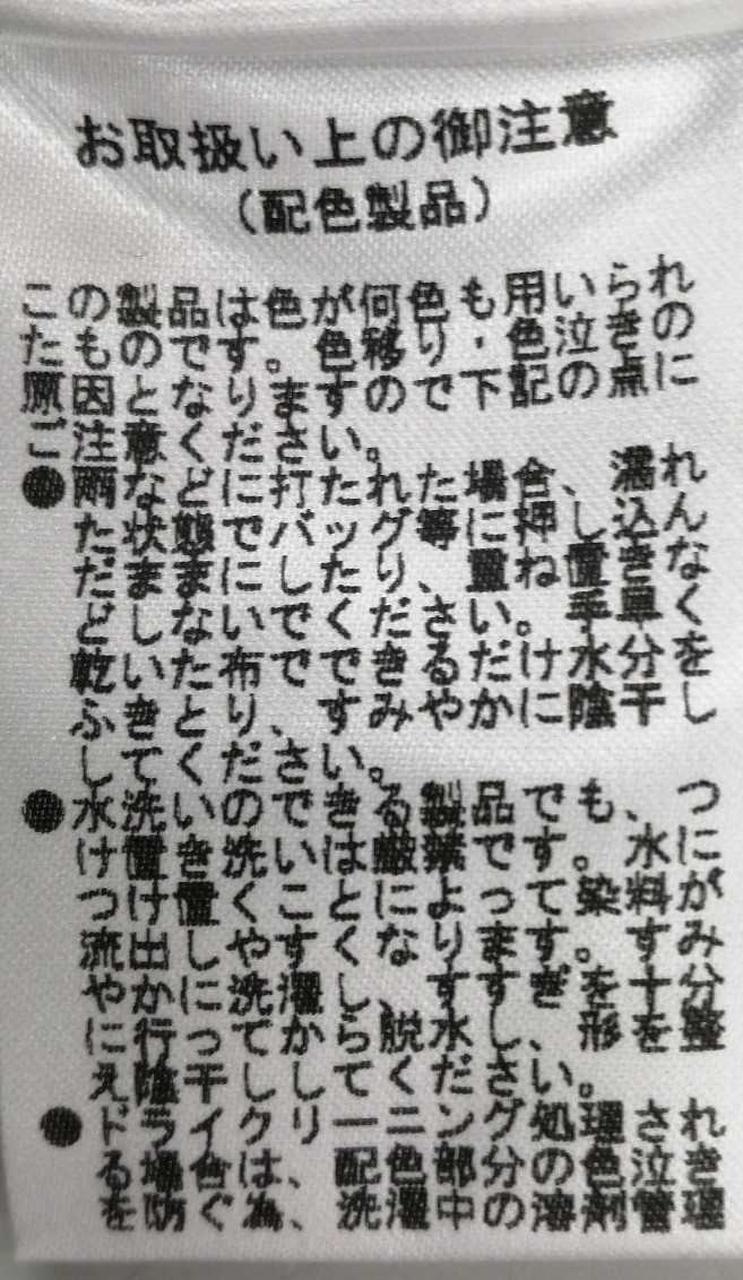 お取扱い上の御注意
(配色製品)
この製品は色が何色も用いられ
たものです。色移り・色泣きの
原因となりますので下記の点に
ご注意ください。
●雨などに打たれた場合、濡れ
た状態でバッグ等に押し込んん
だままにしたり、重ね置きなく
どしないでください。手早くを
乾いた布でできるだけ水分をし
ふきとり、すみやかに陰干し
してください。
●水洗いのできる製品でも、つ
け置き洗いは厳禁です。水に
つけ置くことによって染料が
流出しやすくなります。すみ
やかに洗濯し、すすぎを十分
に行ってから脱水し、形を整
え陰干ししてください。
●ドライクリーニング処理され
る場合は、配色部分の色泣き
を防ぐ為、洗濯中の溶剤管理